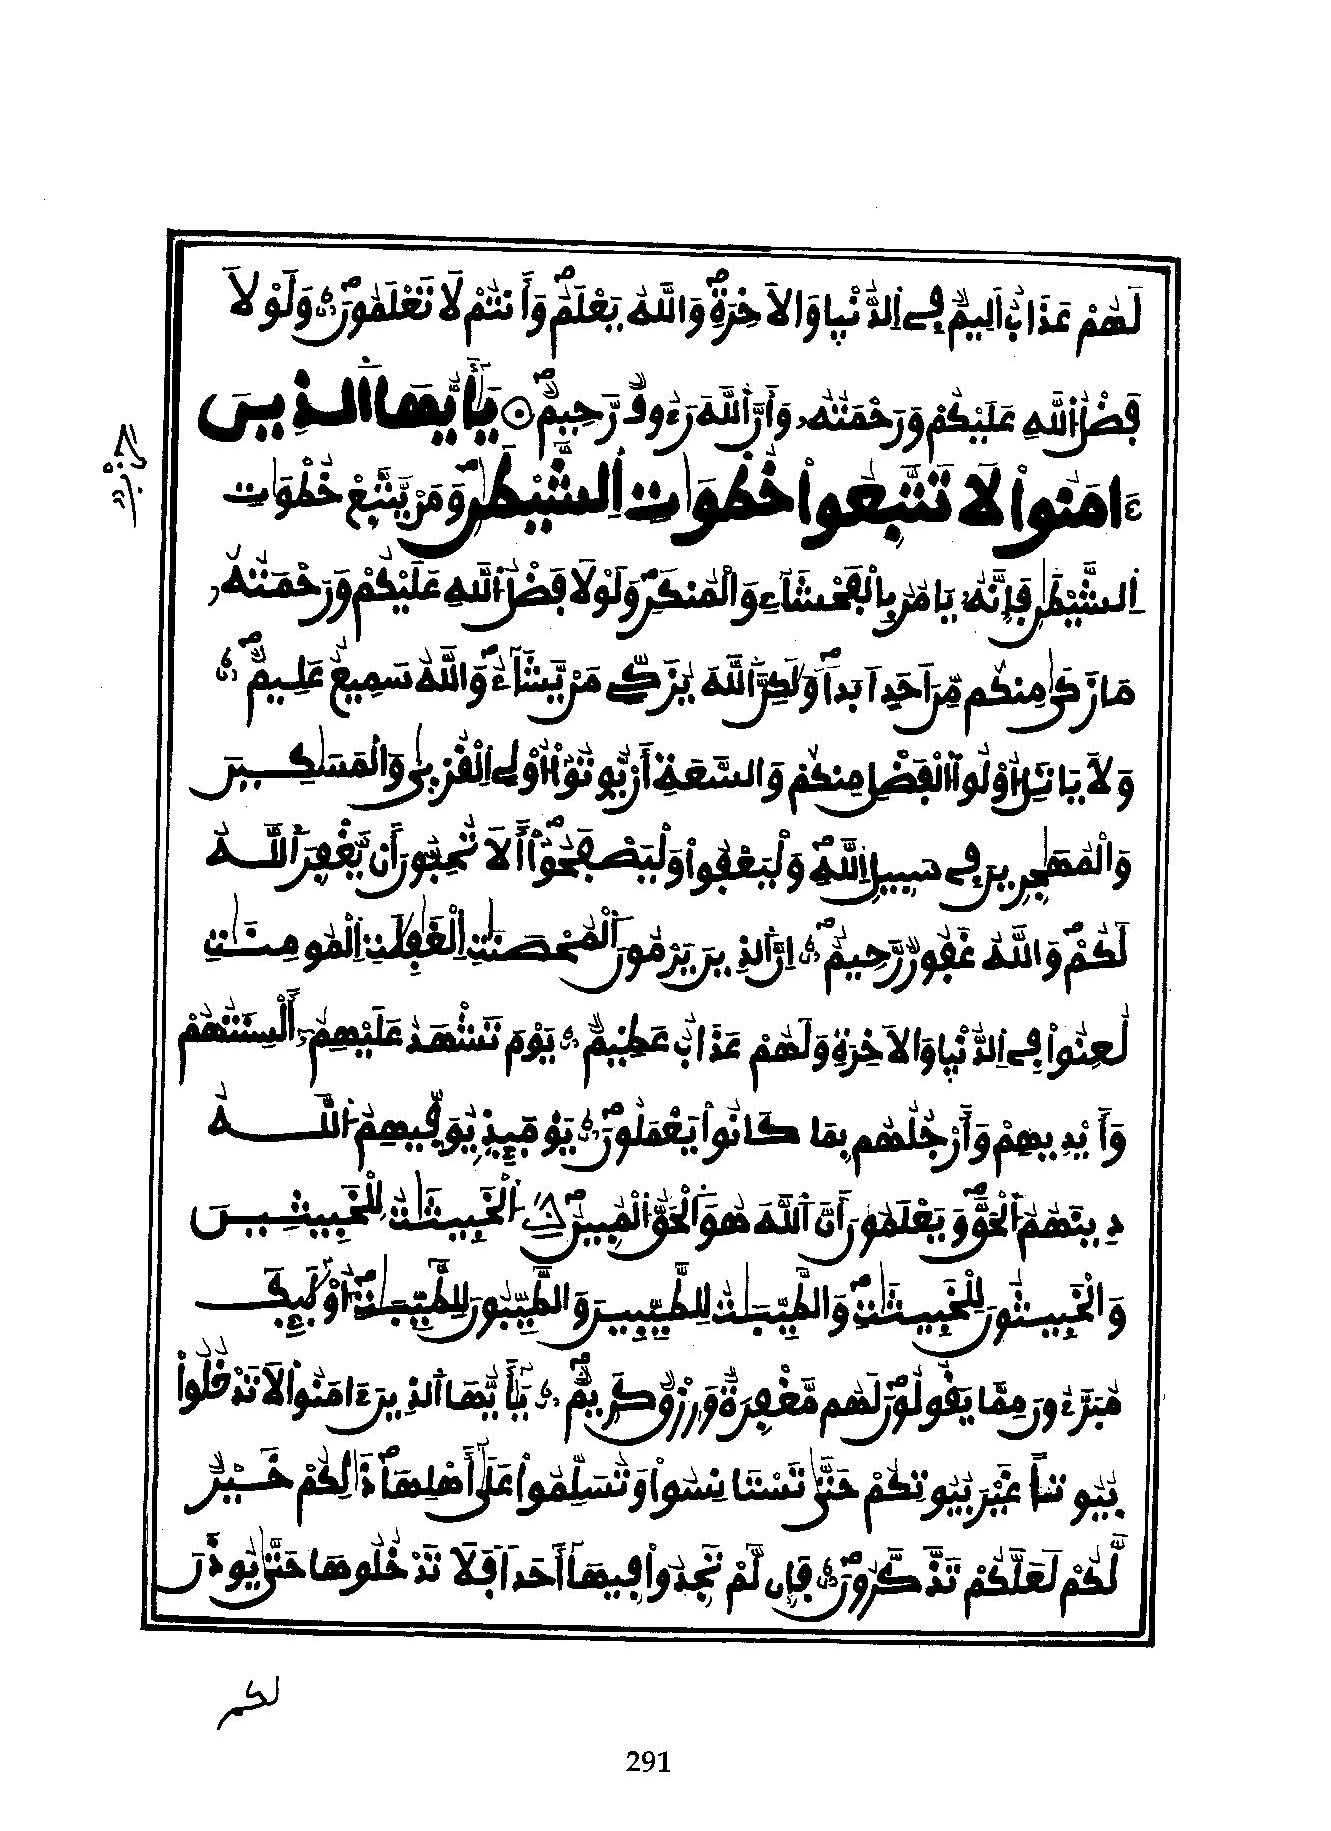 لَهُمْ عَذَابٌ اَلِيمٌ فِے اِلدُّنْيا وَالَاخِرَةِ وَاللَّهُ يَعْلَمُ وَأَنتُمْ لَا تَعْلَمُونَ وَلَوْلَا
فَضْلُ اُللَّهِ عَلَيْكُمْ وَرَحْمَتُهُۥ وَأَنَّ اَللَّهَ رَءُوفٌ رَّحِيمٌ يَٰٓأَيُّهَا اَلذِينَ
ءَامَنُواْ لَا تَتَّبِعُواْ خُطُوَٰتِ اِلشَّيْطَٰنِ وَمَنْ يَّتَّبِعْ خُطُوَٰتِ
اِلشَّيْطَٰنِ فَإِنَّهُۥ يَامُرُ بِالْفَحْشَآءِ وَالْمُنكَرِ وَلَوْلَا فَضْلُ اُللَّهِ عَلَيْكُمْ وَرَحْمَتُهُۥ
مَا زَكَىٰ مِنكُم مِّنَ اَحَدٍ اَبَداً وَلَٰكِنَّ اَللَّهَ يُزَكِّے مَنْ يَّشَآءُ وَاللَّهُ سَمِيعٌ عَلِيمٌ
وَلَا يَاتَلِ أُوْلُواْ اُلْفَضْلِ مِنكُمْ وَالسَّعَةِ أَنْ يُّوتُوٓاْ أُوْلِے اِلْقُرْبَىٰ وَالْمَسَٰكِينَ
وَالْمُهَٰجِرِينَ فِے سَبِيلِ اِللَّهِ وَلْيَعْفُواْ وَلْيَصْفَحُوٓاْ أَلَا تُحِبُّونَ أَنْ يَّغْفِرَ اَللَّهُ
لَكُمْ وَاللَّهُ غَفُورٌ رَّحِيمٌ اِنَّ اَلذِينَ يَرْمُونَ اَلْمُحْصَنَٰتِ اِلْغَٰفِلَٰتِ اِلْمُومِنَٰتِ
لُعِنُواْ فِے اِلدُّنْيا وَالَاخِرَةِ وَلَهُمْ عَذَابٌ عَظِيمٌ يَوْمَ تَشْهَدُ عَلَيْهِمُۥٓ أَلْسِنَتُهُمْ
وَأَيْدِيهِمْ وَأَرْجُلُهُم بِمَا كَانُواْ يَعْمَلُونَ يَوْمَئِذٍ يُوَفِّيهِمُ اُللَّهُ
دِينَهُمُ اُلْحَقَّ وَيَعْلَمُونَ أَنَّ اَللَّهَ هُوَ اَلْحَقُّ اُلْمُبِينُ اُلْخَبِيثَٰتُ لِلْخَبِيثِينَ
وَالْخَبِيثُونَ لِلْخَبِيثَٰتِ وَالطَّيِّبَٰتُ لِلطَّيِّبِينَ وَالطَّيِّبُونَ لِلطَّيِّبَٰتِ أُوْلَٰٓئِكَ
مُبَرَّءُونَ مِمَّا يَقُولُونَ لَهُم مَّغْفِرَةٌ وَرِزْقٌ كَرِيمٌ يَٰٓأَيُّهَا اَلذِينَ ءَامَنُواْ لَا تَدْخُلُواْ
بُيُوتاً غَيْرَ بُيُوتِكُمْ حَتَّىٰ تَسْتَانِسُواْ وَتُسَلِّمُواْ عَلَىٰٓ أَهْلِهَا ذَٰلِكُمْ خَيْرٌ
لَّكُمْ لَعَلَّكُمْ تَذَّكَّرُونَ فَإِن لَّمْ تَجِدُواْ فِيهَآ أَحَداً فَلَا تَدْخُلُوهَا حَتَّىٰ يُوذَنَ
لكم
291